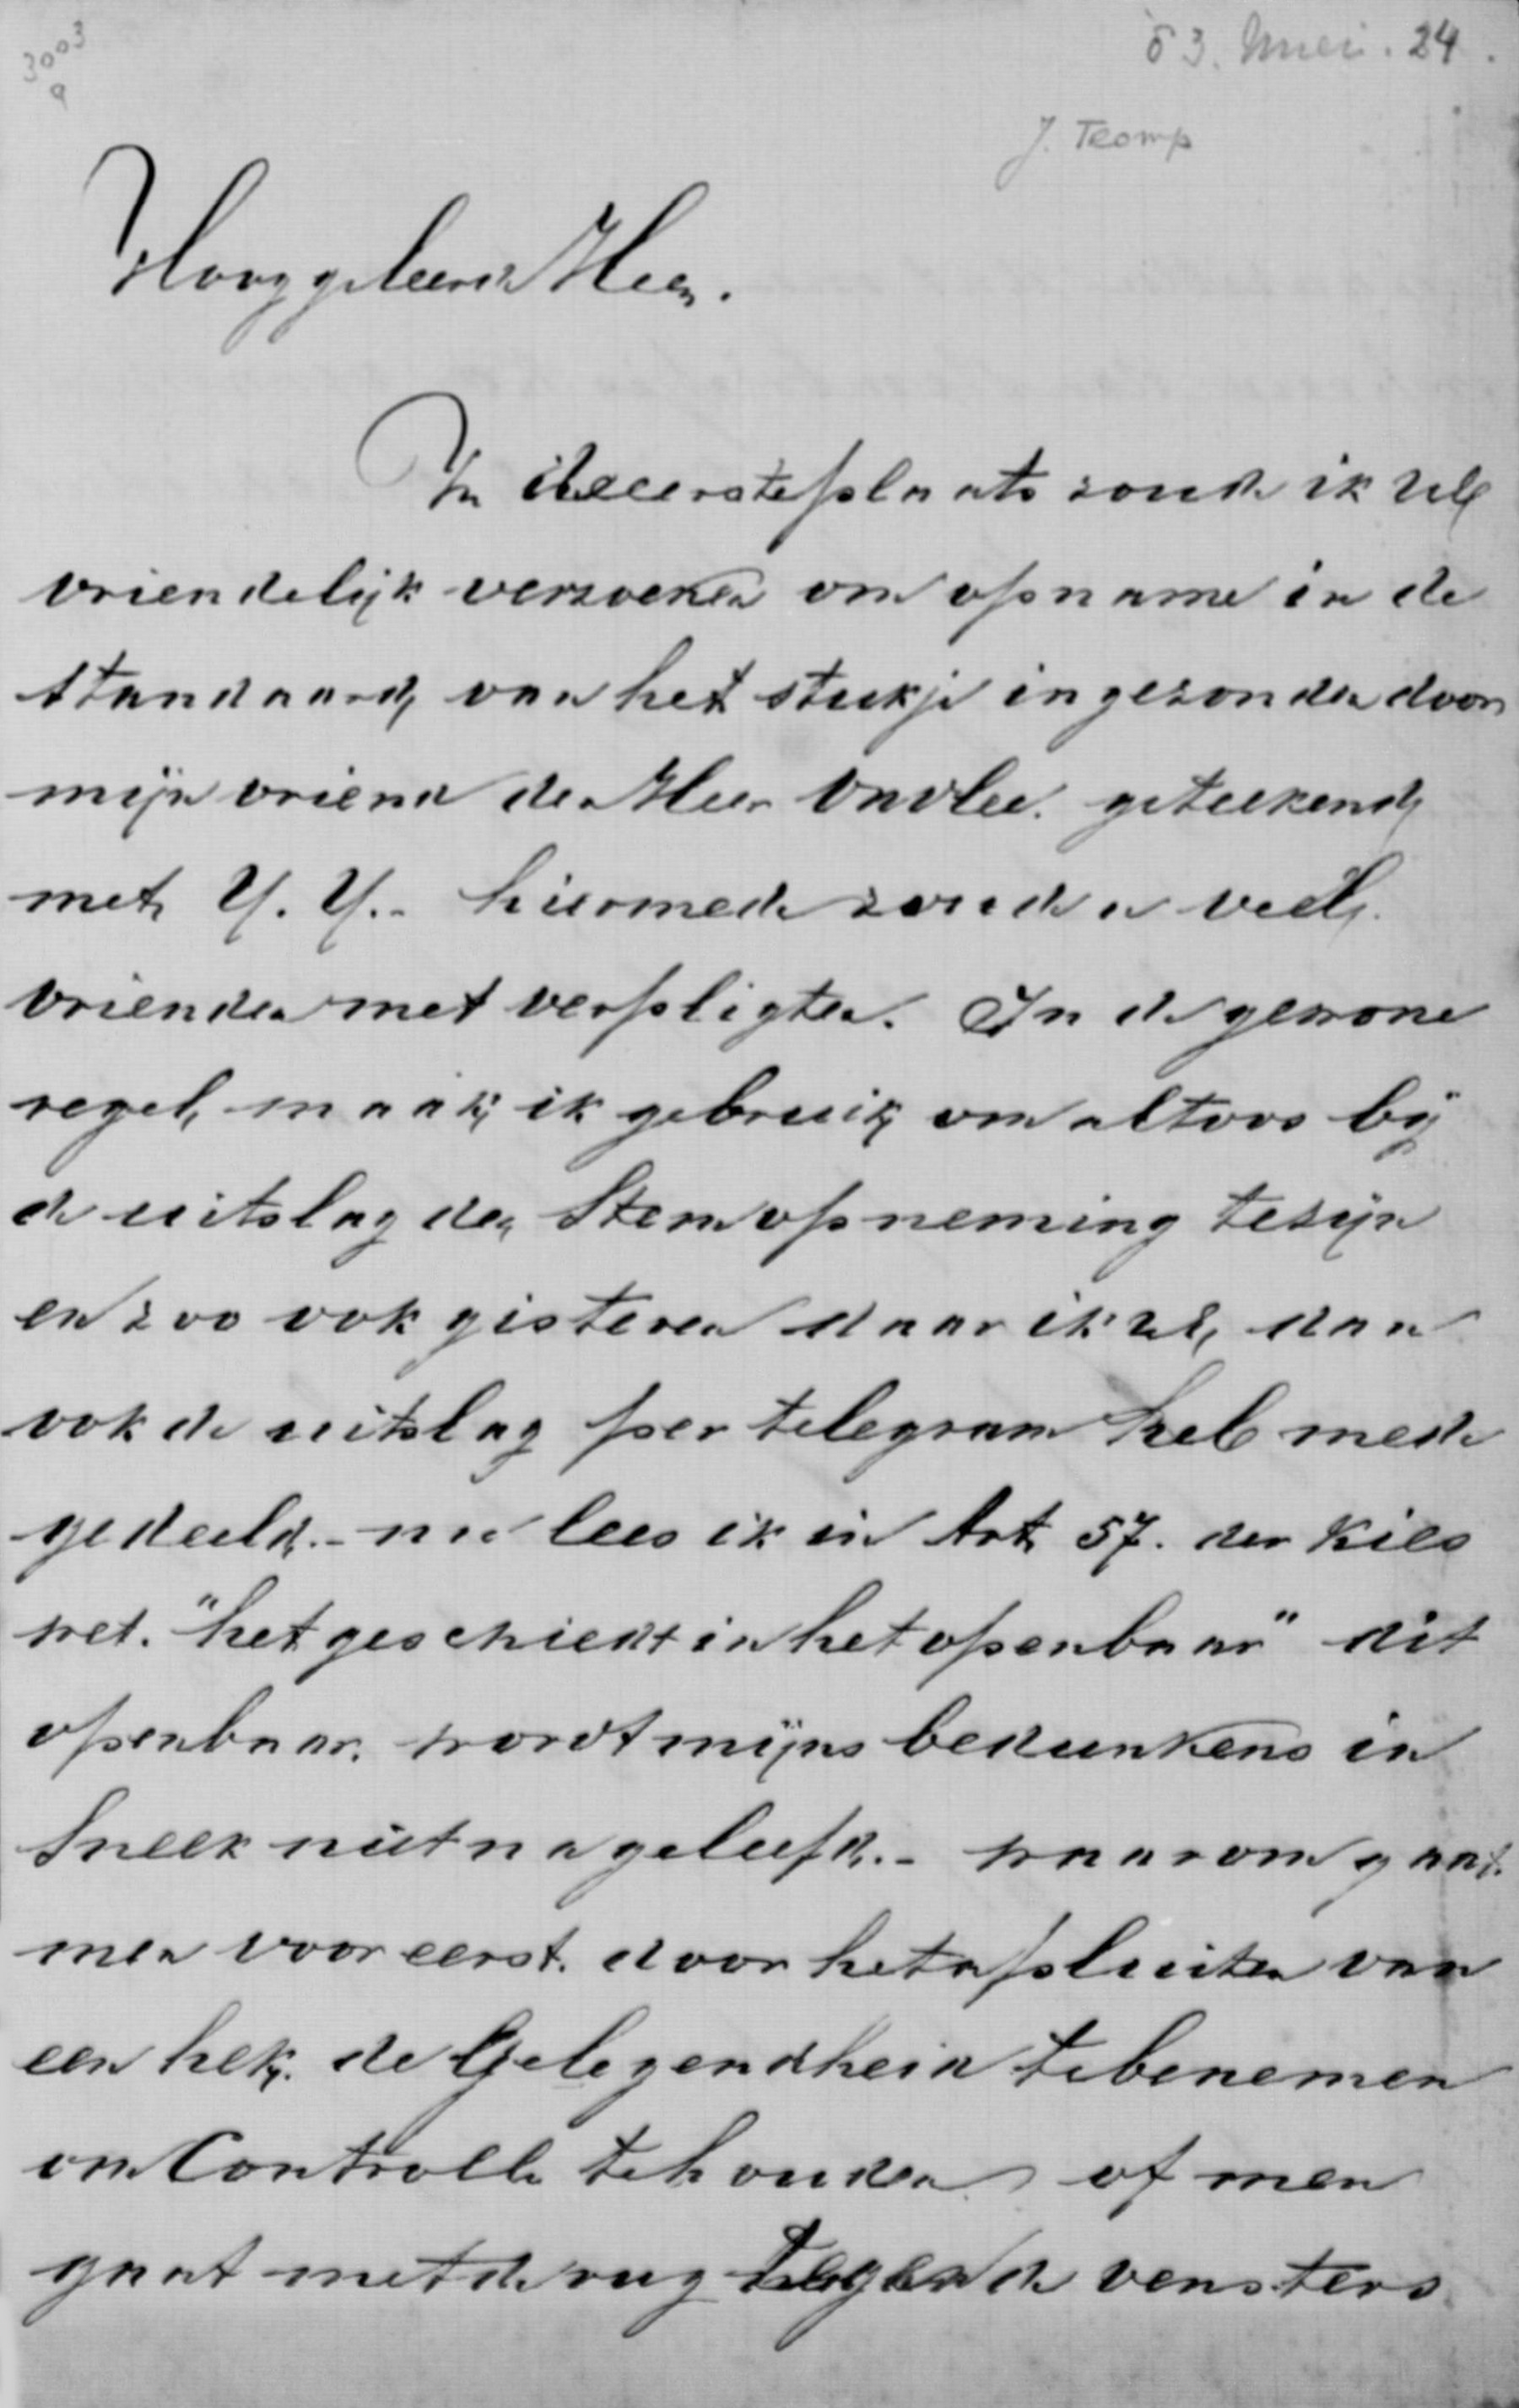 3003
a
J. Tromp
Hooggeleerde Heer.
In de eersteplaats zoude ik UE
vriendelijk verzoeken om opname in de
standaard van het stukje ingezonden door
mijn vriend de Heer geteekend
met Y. Y. - hiermede zoude u veele
vrienden met verpligten. In de gewone
regel, maak ik gebruik om altoos bij
de uitslag der Stemopneming tezijn
en zoo ook gisteren daar ik UE, dan
ook de uitslag per telegram heb mede
gedeeld. - nu lees ik in Art 57. der Kies
wet. "het geschiedt in het openbaar" dit
openbaar. wordt mijns bedunkens in
Sneek niet nageleefd. - waarom gaat
men vooreerst. door het afsluiten van
een hek. de Gelegendheid tebenemen
om Controlle tehouden of men
gaat met de rug tegen de vensters